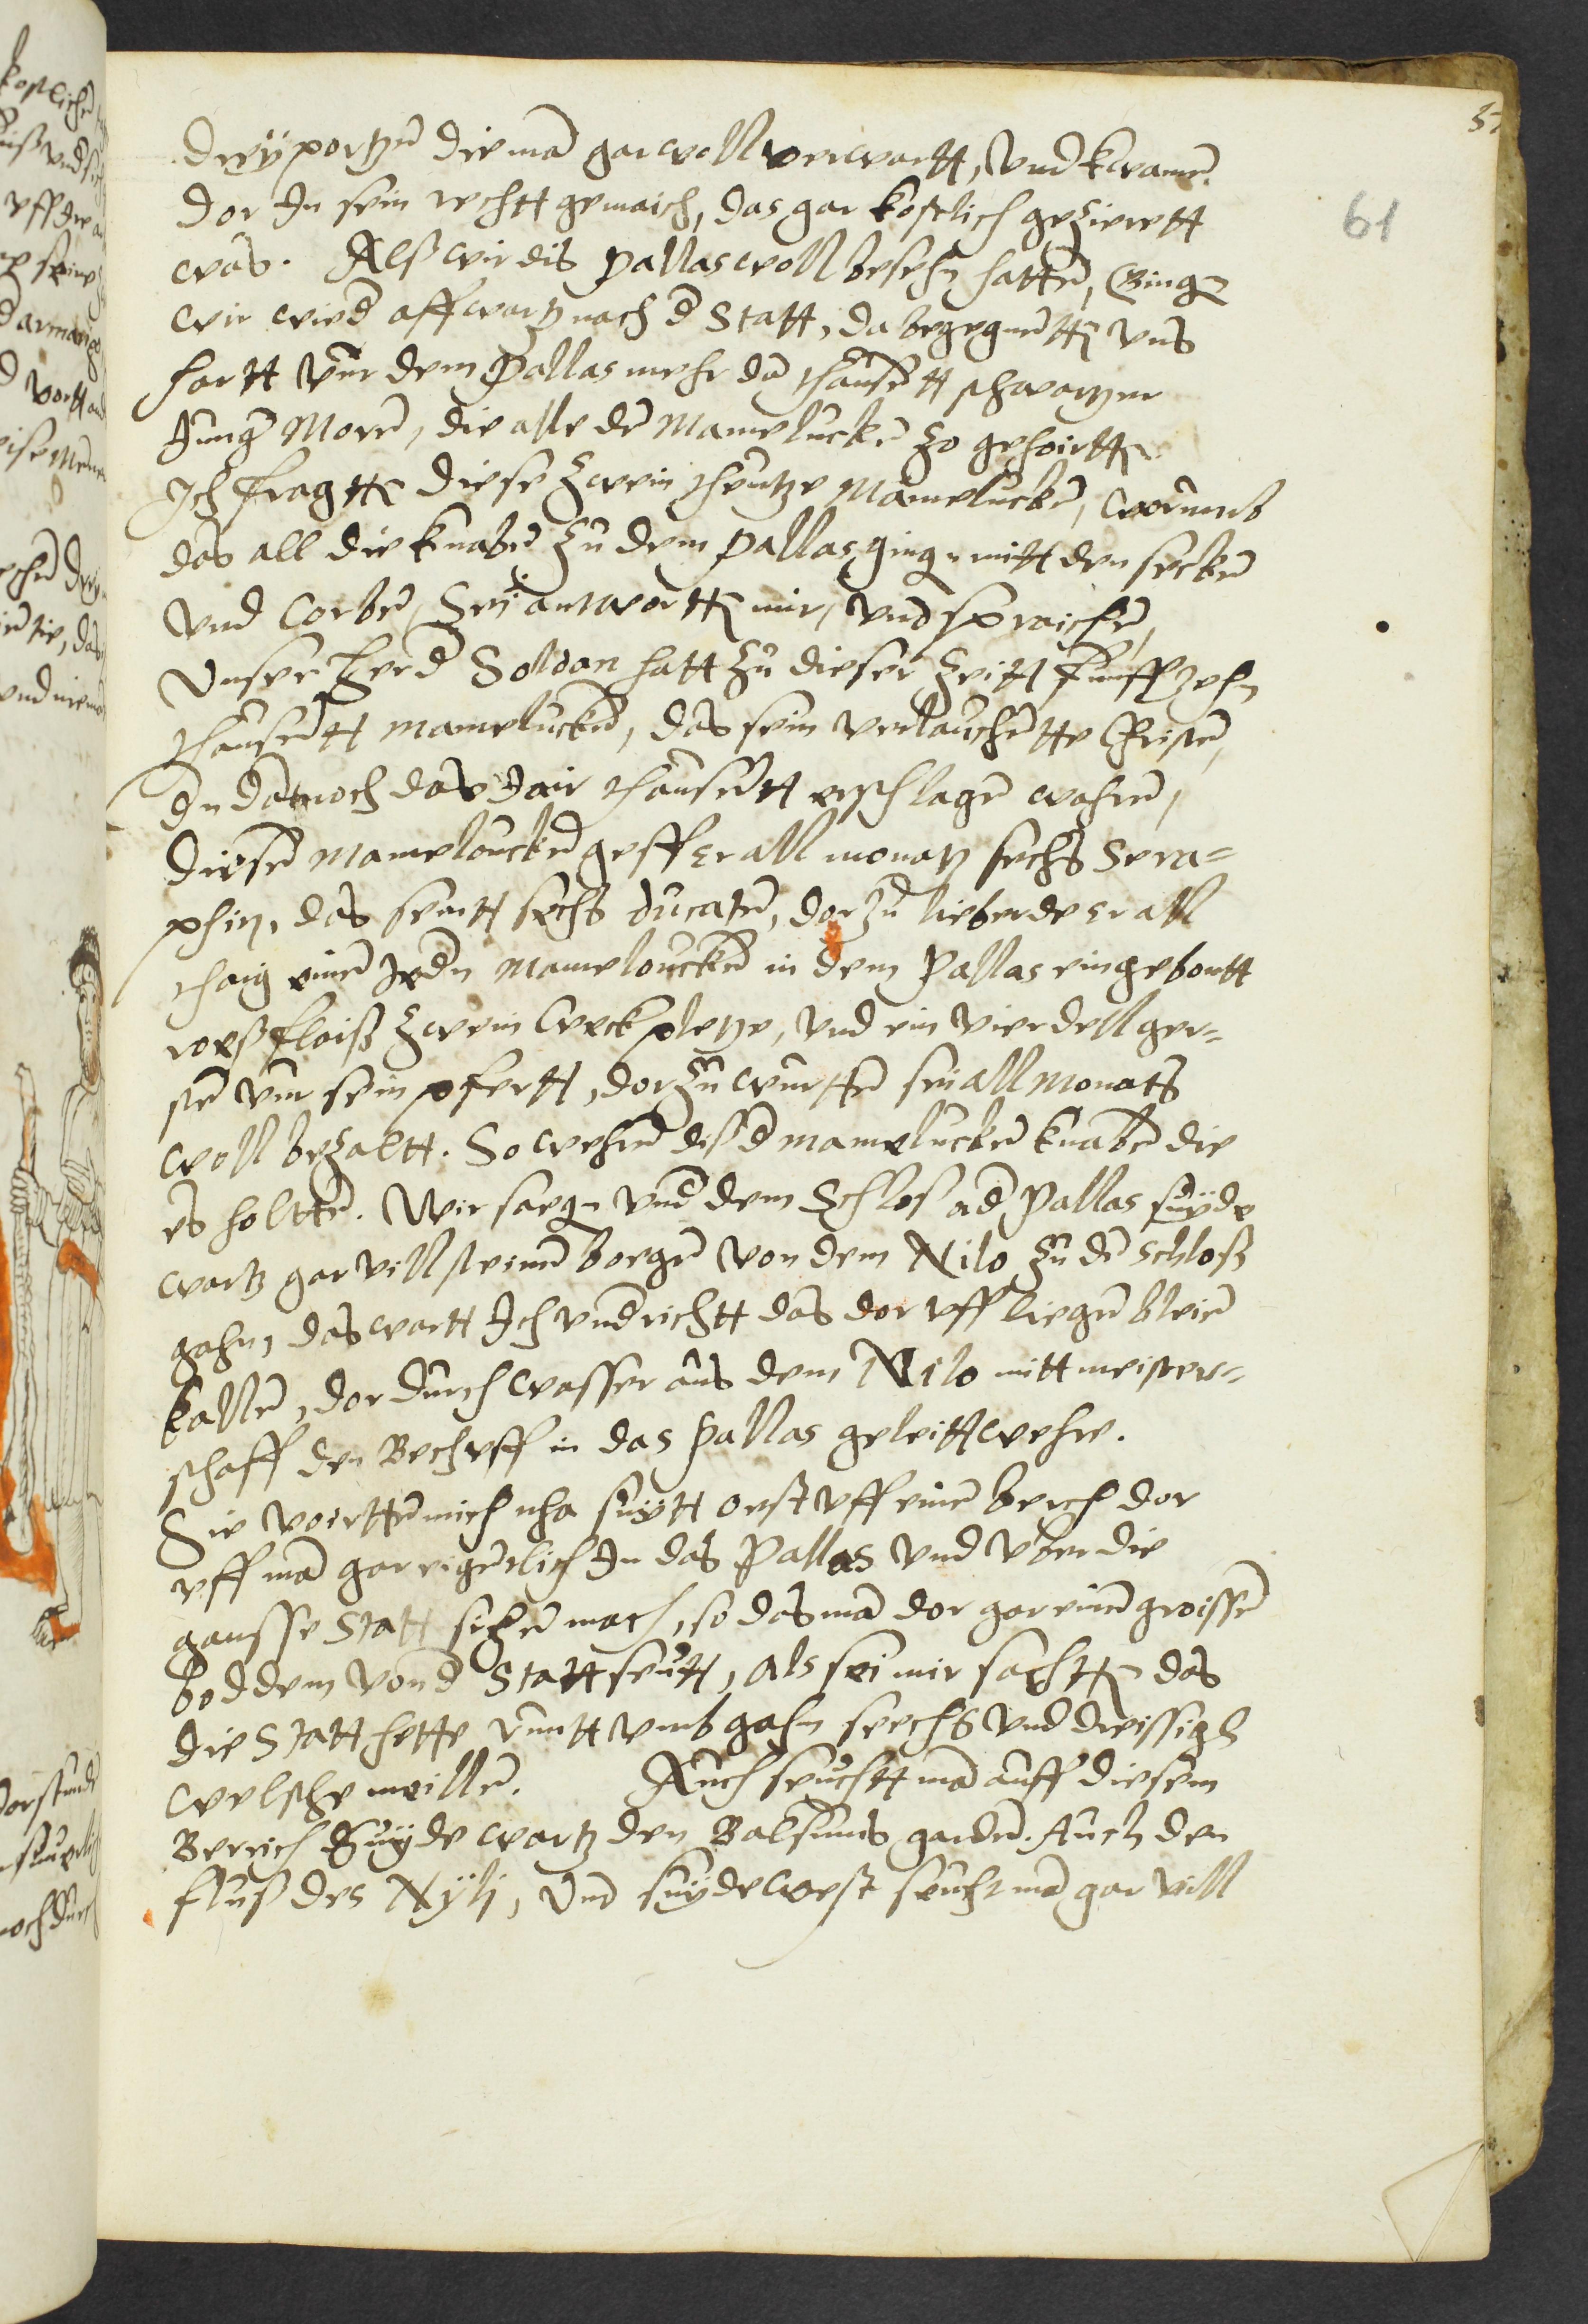 57
61
dreÿ portzen die man gar woll verwartt, und kwamen
dor In sein rechtt gemaich, das gar kostlich gezierett
was. Alß wir dis Pallas woll besehn hatten, Ging
wir wied affwartz nach d Statt, da begegnettn uns
hartt vur dem Pallas mehr dan thausentt schwartzer
Junger Moren, die alle den Mamelucken zo gehoirttn
Ich fragttn diese zwein theutze Mamelucken, worumb
das all die knaben zu dem Pallas ging mitt den secken
vnd Corben, Sei antworttn mir, vnd spraichen,
Vnser her d Soldan hatt zu dieser zeitt funffzehn
thausentt mamelucken, das sein verlauchentte Christen,
In dannoch das Jair thausentt erschlagen wahren,
diesen mameloucken gefft er all monatz sechs Sera-
phin, das sentt sechs ducaten, dor zu lieberde er all
thaig einen Jeden mameloucken in dem Pallas ein gebontt
roeß fleiß zwein weck pletze, vnd ein vierdell ger-
sten vur sein pfertt, dor zu wurtten sei all Monatz
woll bezaltt. So wehren diß d mamelucken knaben die
es holtten. Wir saegn vnd dem Schloß ad Pallas suyde
wartz gar vill steinen boegen von dem Nilo zu den Schloß
gahn, das wartt Ich vndrichtt das dor vff liegen bleien
kallen, dor durch wasser aus dem Nilo mitt meister-
schaff den Bech vff in das Pallas geleitt wehre.
Sie voirtten mich nha suytt oest vff einen berch dor
vff man gar eigentlich In das Pallas vnd vber die
gansse Statt sehen mach, so das man dor gar einen groissen
boddem von d Statt seutt, als sei mir sachttn das
die Statt hette rontt vmb gahn seechs vnd dreissigh
welsche meillen. Auch seuchtt man auff diesem
Berrich Suÿde wartz den Balsums garden. Auch den
fluß des Nÿlj, vnd suÿdewest seucht man gar vill